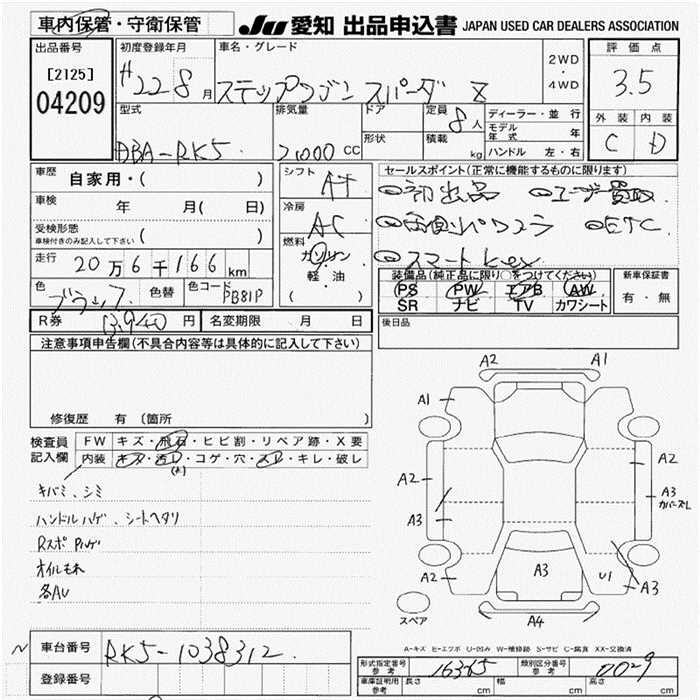 車内保管・守衛保管
JU 愛知 出品申込書 JAPAN USED CAR DEALERS ASSOCIATION
出品番号
[2125]
04209
初度登録年月
H22 8月
車名・グレード
ステップワゴン スパーダ Z
2WD
・
4WD
評価点
3.5
外装 内装
C D
型式
DBA-RK5
排気量
2000 CC
ドア
形状
定員
8人
積載
kg
ディーラー・並行
モデル年式 年
ハンドル 左・右
車歴 自家用・( )
車検 年 月( 日)
受検形態
車検付きのみ記入して下さい ( )
走行 20万6千166km
色 ブラック 色替 色コード PB81P
シフト AT
冷房 AC
燃料
ガソリン
軽・油
( )
セールスポイント(正常に機能するものに限ります)
初出品 ユーザー買取
両側パワスラ ETC
スマートkey
装備品(純正品に限り○をつけてください)
PS PW エアB AW
SR ナビ TV カワシート
新車保証書
有・無
R券 13,940円 名変期限 月 日
後日品
注意事項申告欄(不具合内容等は具体的に記入して下さい)
修復歴 有 〔箇所 〕
検査員記入欄
FW キズ・飛石・ヒビ割・リペア跡・X要
内装 キズ・汚レ・コゲ・穴・スレ・キレ・破レ
キバミ、シミ
ハンドルハゲ、シートヘタリ
オイルモレ
各AU
A2 A1
A1
A2 A2
A3 A3
カバーズレ
A2 A3 U1 A3
スペア A4
A-キズ E-エクボ U-凹み W-補修跡 S-サビ C-腐食 XX-交換済
車台番号 RK5-1038312
登録番号
形式指定番号 参考 16365
類別区分番号 参考 0029
車庫証明用 参考 長さ cm 幅 cm 高さ cm